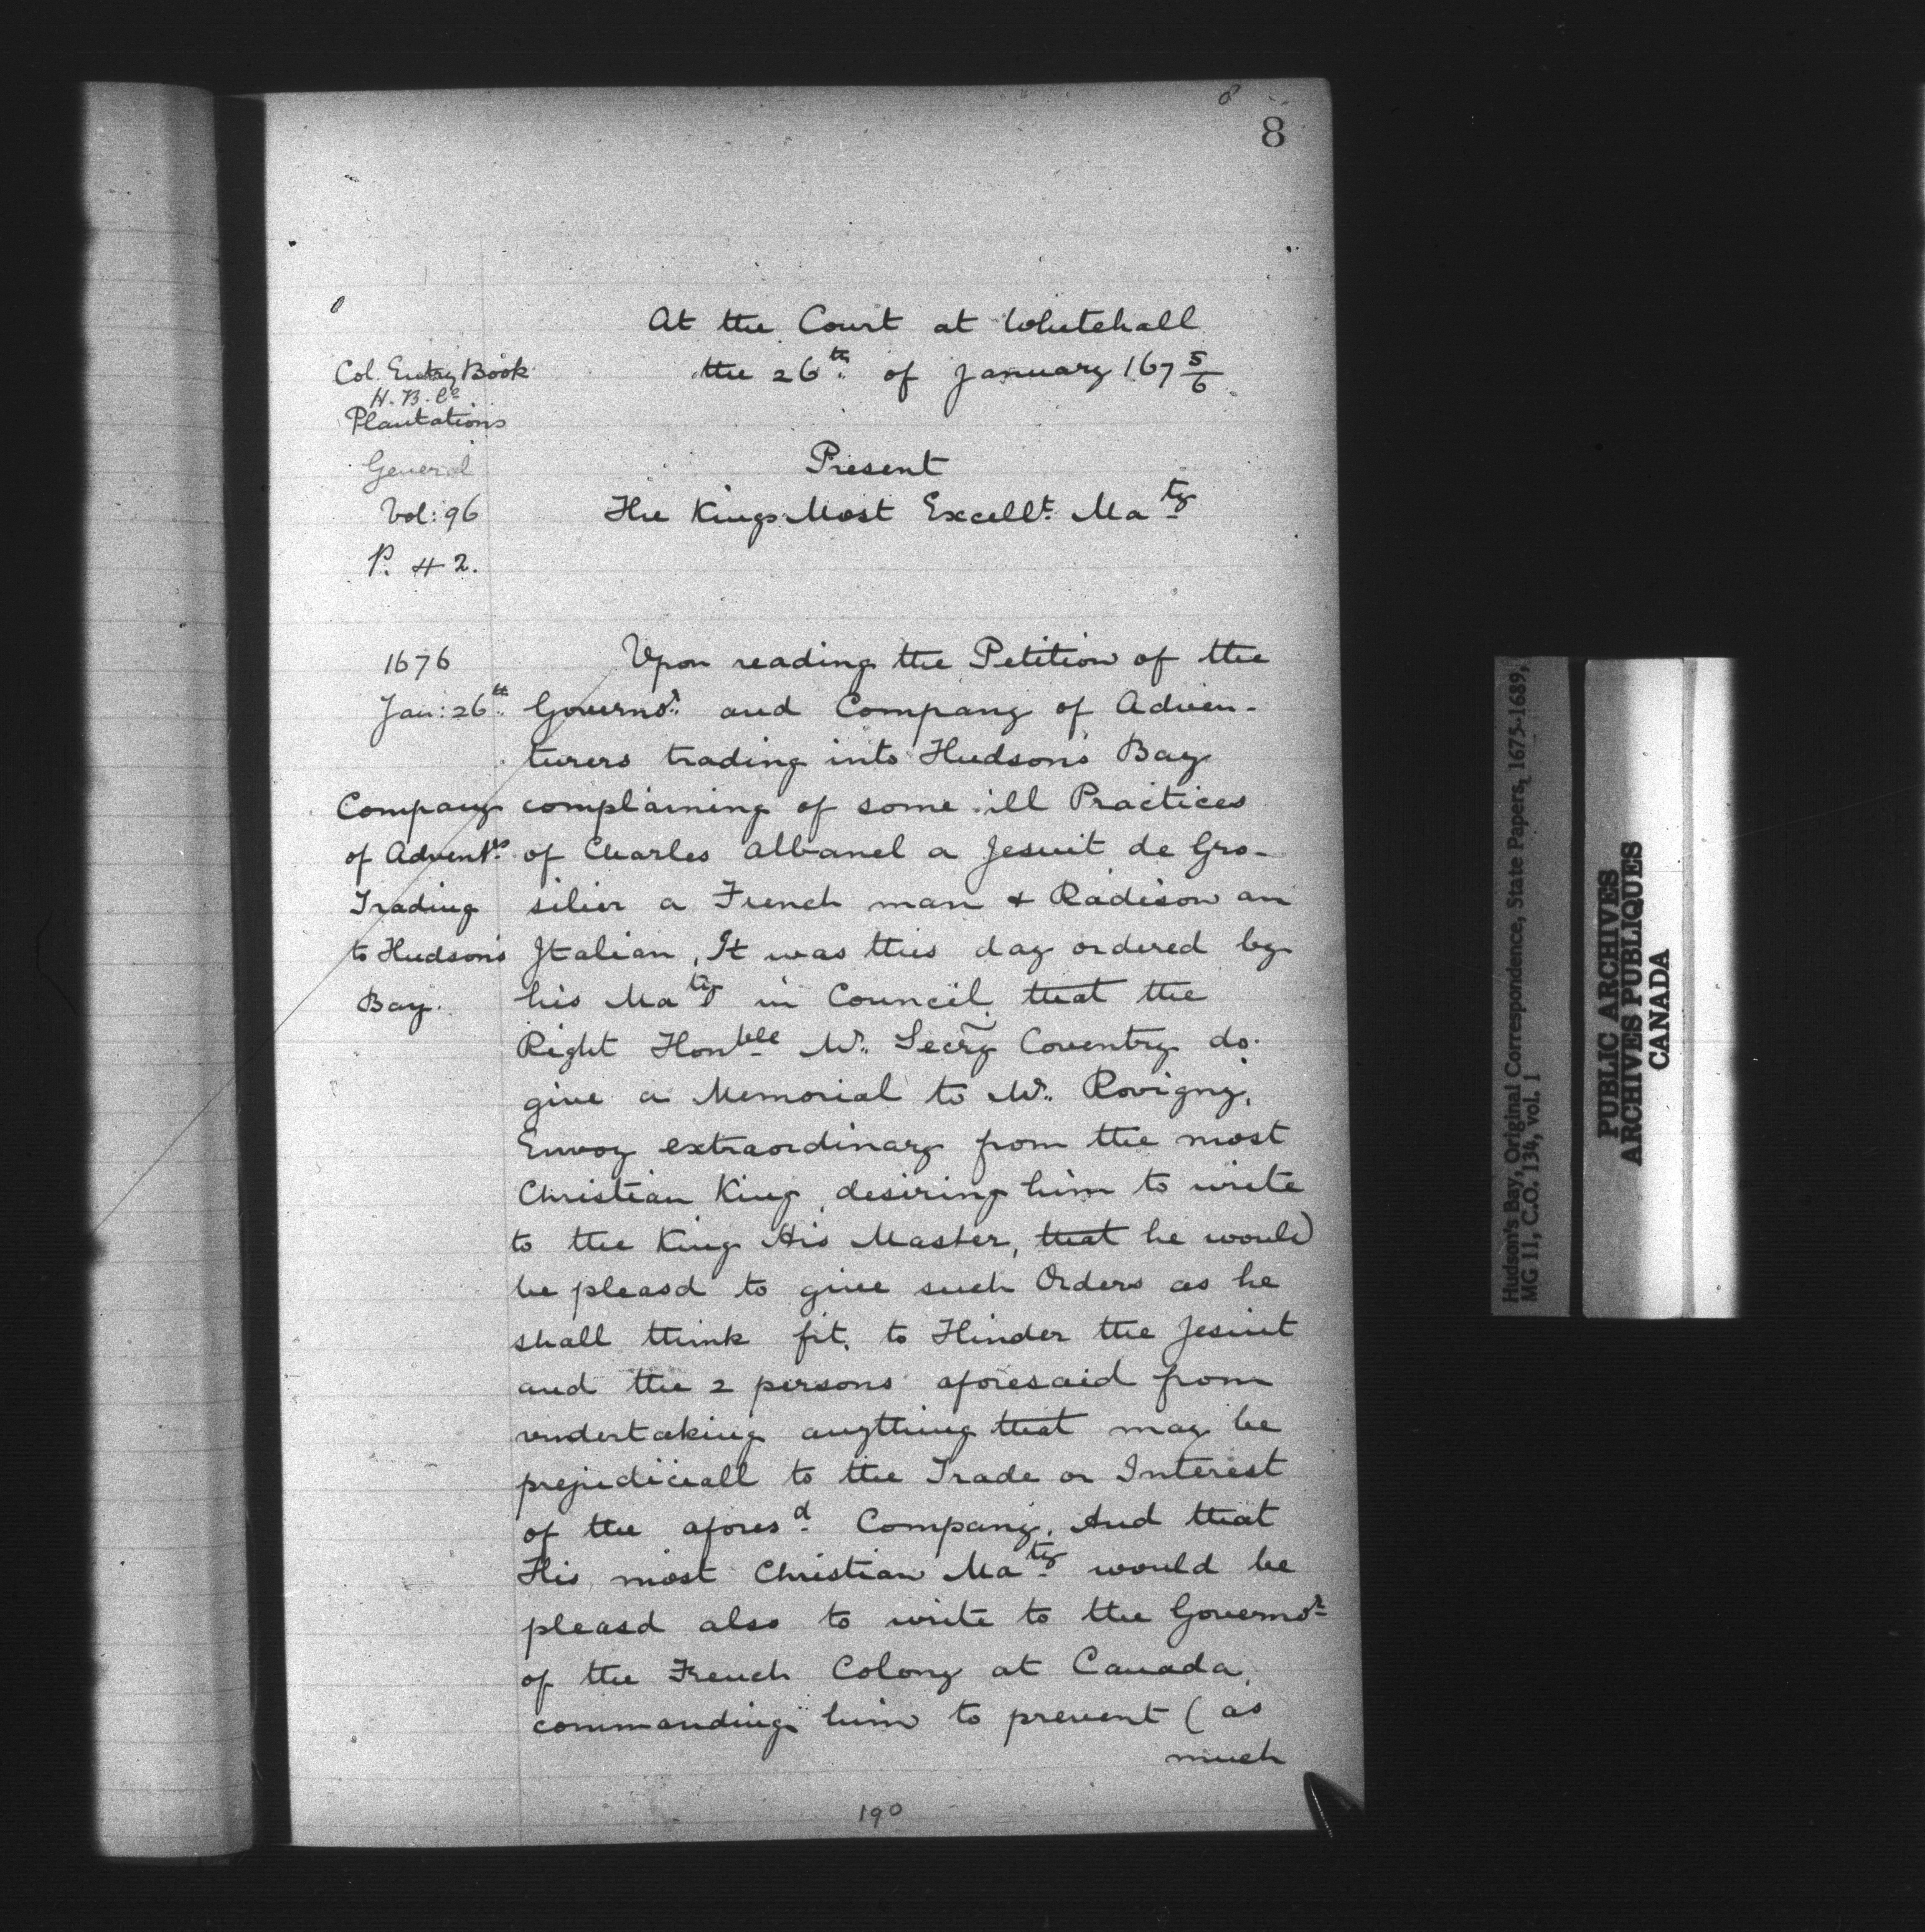 8
8
At the Court at Whitehall
the 26th of January 167 5/6
Col. Entry Book
H. B. Co
Plantations
General
Vol: 96
P. # 2.
Present
The Kings Most Excellt. Maty
1676
Jan: 26th
Company
of Advent.rs
Trading
to Hudson's
Bay.
Vpon reading the Petition of the
Governor. and Company of Adven-
turers trading into Hudson's Bay
complaining of some ill Practices
of Charles Albanel a Jesuit de Gro-
silier a French man & Radison an
Italian, It was this day ordered by
his Maty in Council, that the
Right Honble Mr. Secry Coventry do
give a Memorial to Mr. Rovigny,
Envoy extraordinary from the most
Christian King, desiring him to write
to the King His Master, that he would
be pleasd to give such Orders as he
shall think fit, to Hinder the Jesuit
and the 2 persons aforesaid from
vndertaking anything that may be
prejudiciall to the Trade or Interest
of the aforesd Company, And that
His most Christian Maty would be
pleasd also to write to the Governor
of the French Colony at Canada,
commanding him to prevent (as
much
190
Hudson's Bay, Original Correspondence, State Papers, 1675-1689,
MG 11, C.O. 134, vol. 1
PUBLIC ARCHIVES
ARCHIVES PUBLIQUES
CANADA